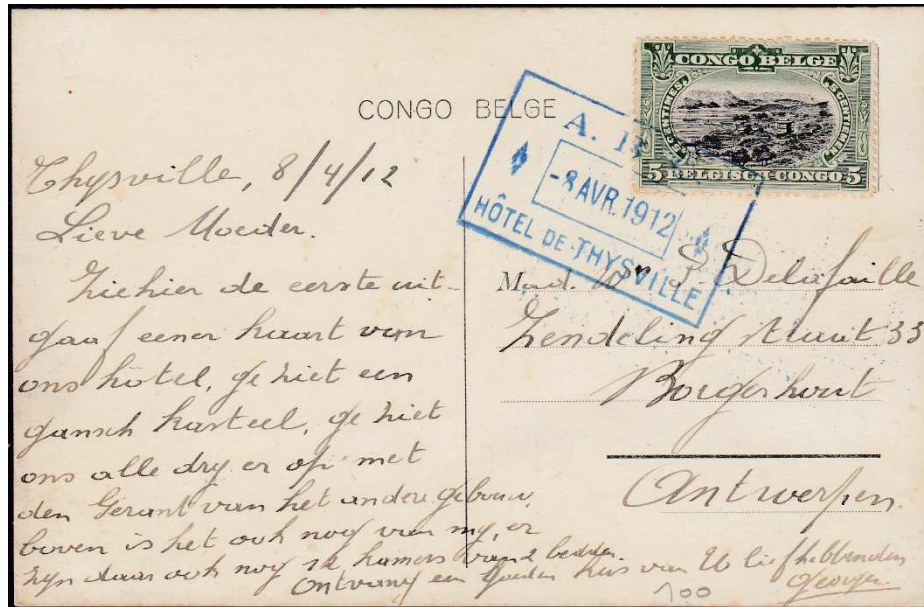 CONGO BELGE
CONGO BELGE
5 CENTIMES
5 CENTIMES
5 BELGISCH-CONGO 5
A. B
-8 AVR. 1912
HÔTEL DE THYSVILLE
Thysville, 8/4/12
Lieve Moeder.
Ziehier de eerste uit-
gaaf eener kaart van
ons hotel, ge ziet een
gansch kasteel, ge ziet
ons alle dry er op met
den Gerant van het andere gebouw,
boven is het ook nog van my, er
zyn daar ook nog 12 kamers van 2 bedden.
Ontvang een goeden kus van U liefhebbenden
Georges.
Mad. We P. Delafaille
Zendelingstraat 33
Borgerhout
Antwerpen.
100